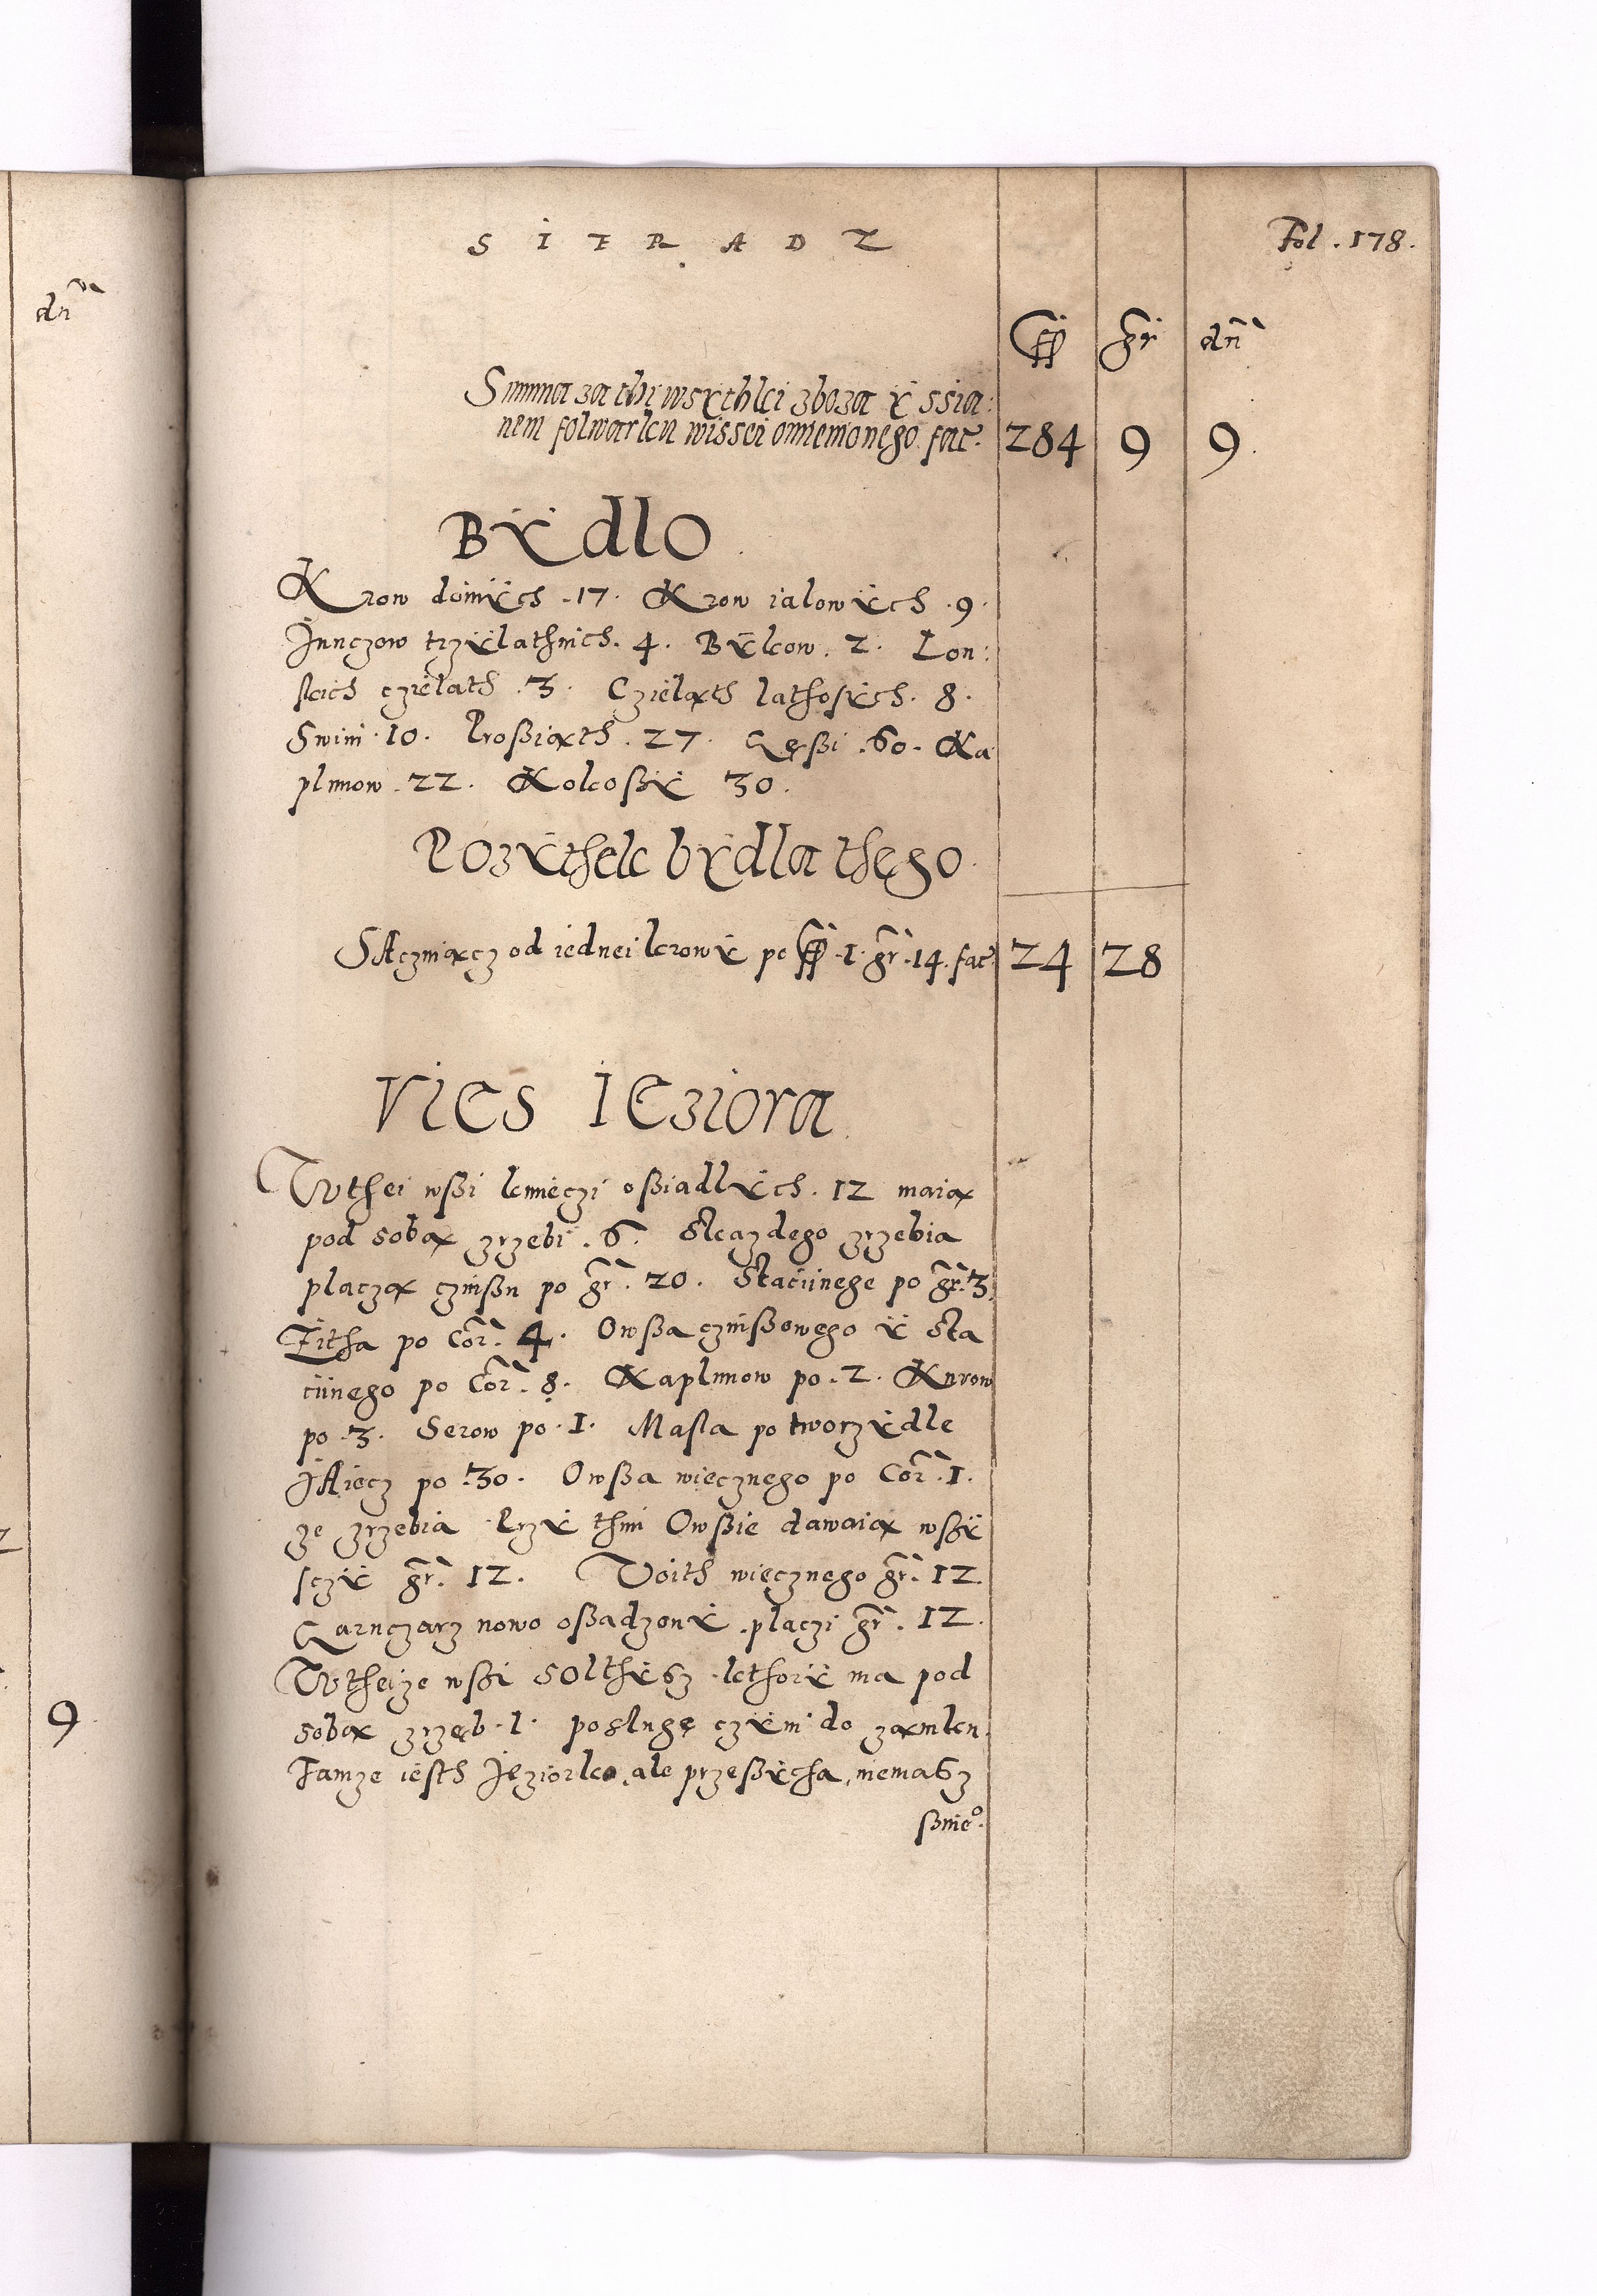 dn̄
9
SIERADZ
Fol. 178.
fl gr̄ dn̄
Summa za thi wsythki zboza ÿ ssia:
nem folwarku wissei omiemonego fac̄. 284 9 9.
BÿdlO
Krow doinÿch .17. Krow ialowÿch .9.
Junczow trzÿlathnich. 4. Bÿkow. 2. Lon:
skich czielath .3. Czieląth lathosÿch. 8.
Swini .10. Proßiąth .27. Gęßi .60. Ka
plunow .22. Kokoßÿ 30.
Pozÿthek bÿdla thego
SAcziuącz od iednei krowÿ po fl .1. gr̄ .14. fac̄. 24 28
Vies IEziora
Wthei wßi kmieczi oßiadlÿch. 12 maią
pod sobą zrzebi .6. Skazdego zrzebia
placzą czinßu po gr̄. 20. Staciinego po gr̄. 3.
Zitha po Cor̄. 4. Owßa czinßowego ÿ Sta
ciinego po Cor̄. 8. Kaplunow po .2. Kurow
po .3. Serow po .1. Masla po tworzÿdle
JAiecz po .30. Owßa wiecznego po Cor̄ .1.
ze zrzebia Przÿ thim Owßie dawaią wßÿ
sczÿ gr̄. 12. Voith więcznego gr̄. 12.
Garnczarz nowo oßadzonÿ placzi gr̄. 12.
Wtheize wßi SOlthÿsz kthorÿ ma pod
sobą zrzęb .1. poslugę czÿni do zamku.
Tamze iesth Jęziorko, ale przeßÿcha, niemasz
ßnie°.